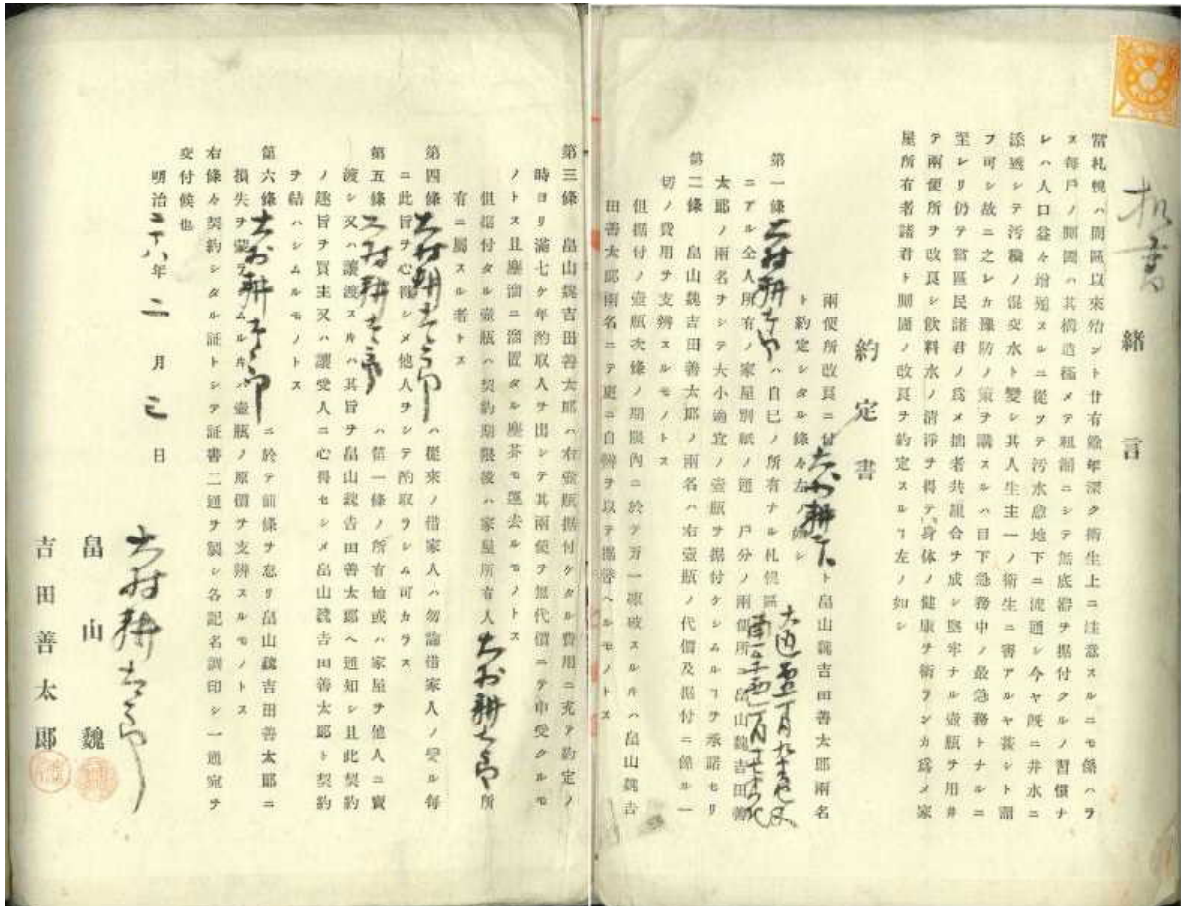 緒言
當札幌ハ開區以來殆ント廿有餘年深ク衛生上ニ注意スルニモ係ハラ
ス每戶ノ厠圊ハ其構造極メテ粗漏ニシテ無底器ヲ据付クルノ習慣ナ
レハ人口益々增殖スルニ從ツテ汚水悉地下ニ流通シ今ヤ既ニ井水ニ
添透シテ汚穢ノ混交水ト變シ其人生主一ノ衛生ニ害アルヤ蓋シト謂
フ可シ故ニ之レカ豫防ノ策ヲ講スルハ目下急務中ノ最急務トナルニ
至レリ仍テ當區民諸君ノ爲メ拙者共組合ヲ成シ堅牢ナル壺瓶ヲ用井
テ兩便所ヲ改良シ飮料水ノ淸淨ヲ得テ身体ノ健康ヲ衛ランカ爲メ家
屋所有者諸君ト厠圊ノ改良ヲ約定スルヿ左ノ如シ
約定書
兩便所改良ニ付 ト畠山魏吉田善太郎兩名
ト約定シタル條々左ノ如シ
第一條 ハ自已ノ所有ナル札幌區
ニアル仝人所有ノ家屋別紙ノ通 戶分ノ兩便所ニ畠山魏吉田善
太郎ノ兩名ヲシテ大小適宜ノ壺瓶ヲ据付ケシムルヿヲ承諾セリ
第二條 畠山魏吉田善太郎ノ兩名ハ右壺瓶ノ代價及据付ニ係ル一
切ノ費用ヲ支辨スルモノトス
但据付ノ壺瓶次條ノ期限內ニ於テ万一壞破スルㇳキハ畠山魏吉
田善太郎兩名ニテ更ニ自辨ヲ以テ据替ヘルモノトス
第三條 畠山魏吉田善太郎ハ右壺瓶据付ケタル費用ニ充ヲ約定ノ
時ヨリ滿七ケ年酌取人ヲ出シテ其兩便ヲ無代價ニテ申受クルモ
ノトス且塵溜ニ溜置タル塵芥モ運去ルモノトス
但据付タル壺瓶ハ契約期限後ハ家屋所有人 所
有ニ屬スル者トス
第四條 ハ從來ノ借家人ハ勿論借家人ノ變ル每
ニ此旨ヲ心得シメ他人ヲシテ酌取ラシム可カラス
第五條 ハ第一條ノ所有地或ハ家屋ヲ他人ニ賣
渡シ又ハ讓渡スㇳキハ其旨ヲ畠山魏吉田善太郎ヘ通知シ且此契約
ノ趣旨ヲ買主又ハ讓受人ニ心得セシメ畠山魏吉田善太郎ト契約
ヲ結ハシムルモノトス
第六條 ニ於テ前條ヲ怠リ畠山魏吉田善太郎ニ
損失ヲ蒙ラシムルㇳキハ壺瓶ノ原價ヲ支辨スルモノトス
右條々契約シタル証トシテ証書二通ヲ製シ各記名調印シ一通宛ヲ
交付候也
明治二十八年二月 日
畠山魏
吉田善太郎